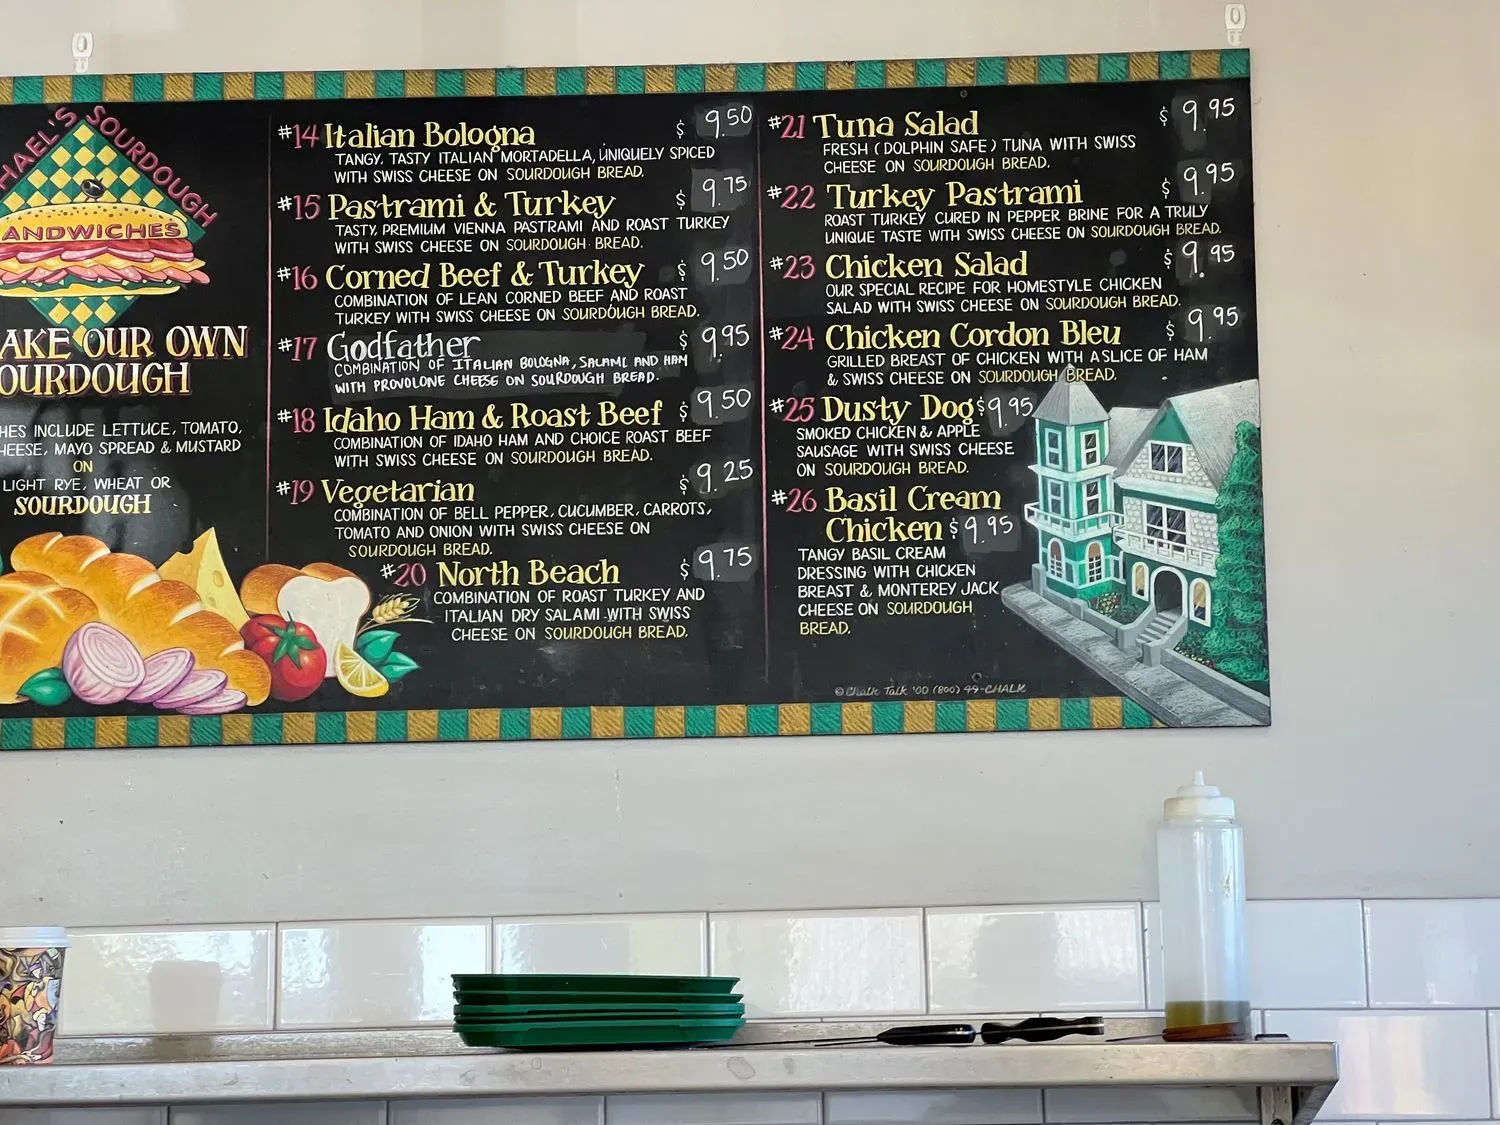 HAEL'S SOURDOUGH
ANDWICHES
AKE OUR OWN
OURDOUGH
HES INCLUDE LETTUCE, TOMATO,
HEESE, MAYO SPREAD & MUSTARD
ON
LIGHT RYE, WHEAT OR
SOURDOUGH
#14 Italian Bologna $ 9.50
TANGY, TASTY ITALIAN MORTADELLA, UNIQUELY SPICED
WITH SWISS CHEESE ON SOURDOUGH BREAD.
#15 Pastrami & Turkey $ 9.75
TASTY, PREMIUM VIENNA PASTRAMI AND ROAST TURKEY
WITH SWISS CHEESE ON SOURDOUGH BREAD.
#16 Corned Beef & Turkey $ 9.50
COMBINATION OF LEAN CORNED BEEF AND ROAST
TURKEY WITH SWISS CHEESE ON SOURDOUGH BREAD.
#17 Godfather $ 9.95
COMBINATION OF ITALIAN BOLOGNA, SALAMI AND HAM
WITH PROVOLONE CHEESE ON SOURDOUGH BREAD.
#18 Idaho Ham & Roast Beef $ 9.50
COMBINATION OF IDAHO HAM AND CHOICE ROAST BEEF
WITH SWISS CHEESE ON SOURDOUGH BREAD.
#19 Vegetarian $ 9.25
COMBINATION OF BELL PEPPER, CUCUMBER, CARROTS,
TOMATO AND ONION WITH SWISS CHEESE ON
SOURDOUGH BREAD.
#20 North Beach $ 9.75
COMBINATION OF ROAST TURKEY AND
ITALIAN DRY SALAMI WITH SWISS
CHEESE ON SOURDOUGH BREAD.
#21 Tuna Salad $ 9.95
FRESH (DOLPHIN SAFE) TUNA WITH SWISS
CHEESE ON SOURDOUGH BREAD.
#22 Turkey Pastrami $ 9.95
ROAST TURKEY CURED IN PEPPER BRINE FOR A TRULY
UNIQUE TASTE WITH SWISS CHEESE ON SOURDOUGH BREAD.
#23 Chicken Salad $ 9.95
OUR SPECIAL RECIPE FOR HOMESTYLE CHICKEN
SALAD WITH SWISS CHEESE ON SOURDOUGH BREAD.
#24 Chicken Cordon Bleu $ 9.95
GRILLED BREAST OF CHICKEN WITH A SLICE OF HAM
& SWISS CHEESE ON SOURDOUGH BREAD.
#25 Dusty Dog $9.95
SMOKED CHICKEN & APPLE
SAUSAGE WITH SWISS CHEESE
ON SOURDOUGH BREAD.
#26 Basil Cream
Chicken $9.95
TANGY BASIL CREAM
DRESSING WITH CHICKEN
BREAST & MONTEREY JACK
CHEESE ON SOURDOUGH
BREAD.
© Chalk Talk '00 (800) 49-CHALK